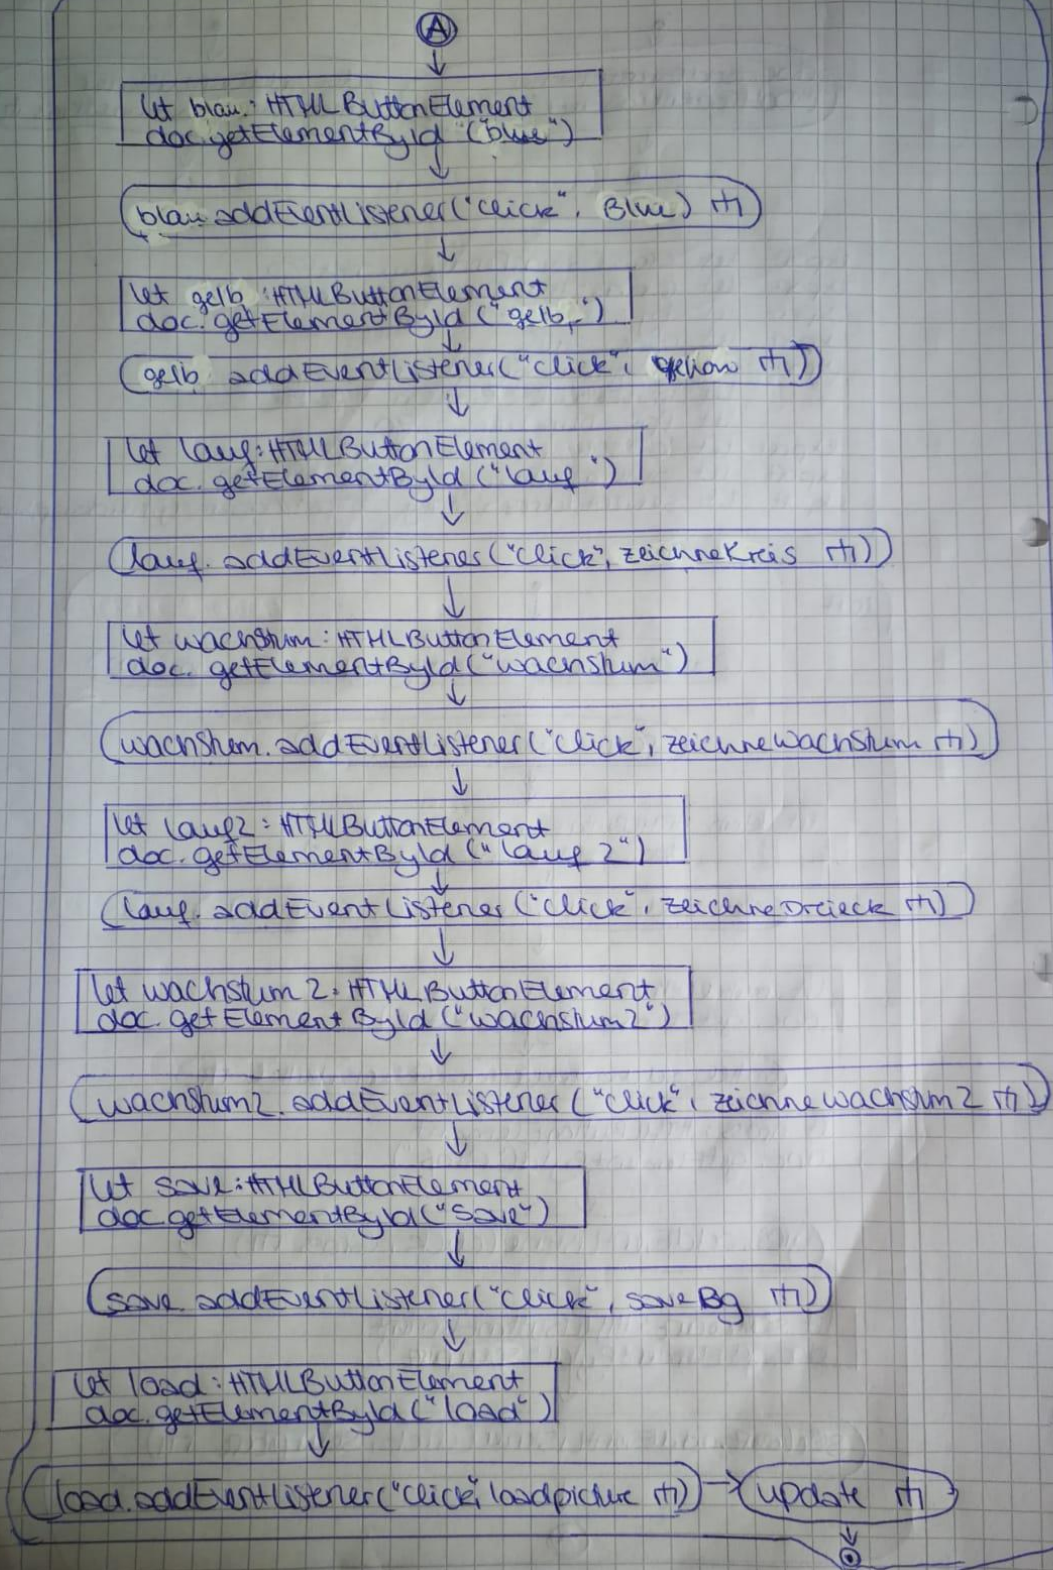 A
let blau: HTMLButtonElement
doc.getElementById ("blue")
blau.addEventListener("click", Blue)
let gelb: HTMLButtonElement
doc.getElementById ("gelb")
gelb.addEventListener("click", yellow)
let lauf: HTMLButtonElement
doc.getElementById ("lauf")
lauf.addEventListener("click", zeichneKreis)
let wachstum: HTMLButtonElement
doc.getElementById("wachstum")
wachstum.addEventListener("click", zeichneWachstum)
let lauf2: HTMLButtonElement
doc.getElementById ("lauf2")
lauf.addEventListener ("click", zeichneDreieck)
let wachstum2: HTMLButtonElement
doc.getElementById ("wachstum2")
wachstum2.addEventListener ("click", zeichneWachstum2)
let save: HTMLButtonElement
doc.getElementById("save")
save.addEventListener("click", saveBg)
let load: HTMLButtonElement
doc.getElementById("load")
load.addEventListener("click", loadpicture) update